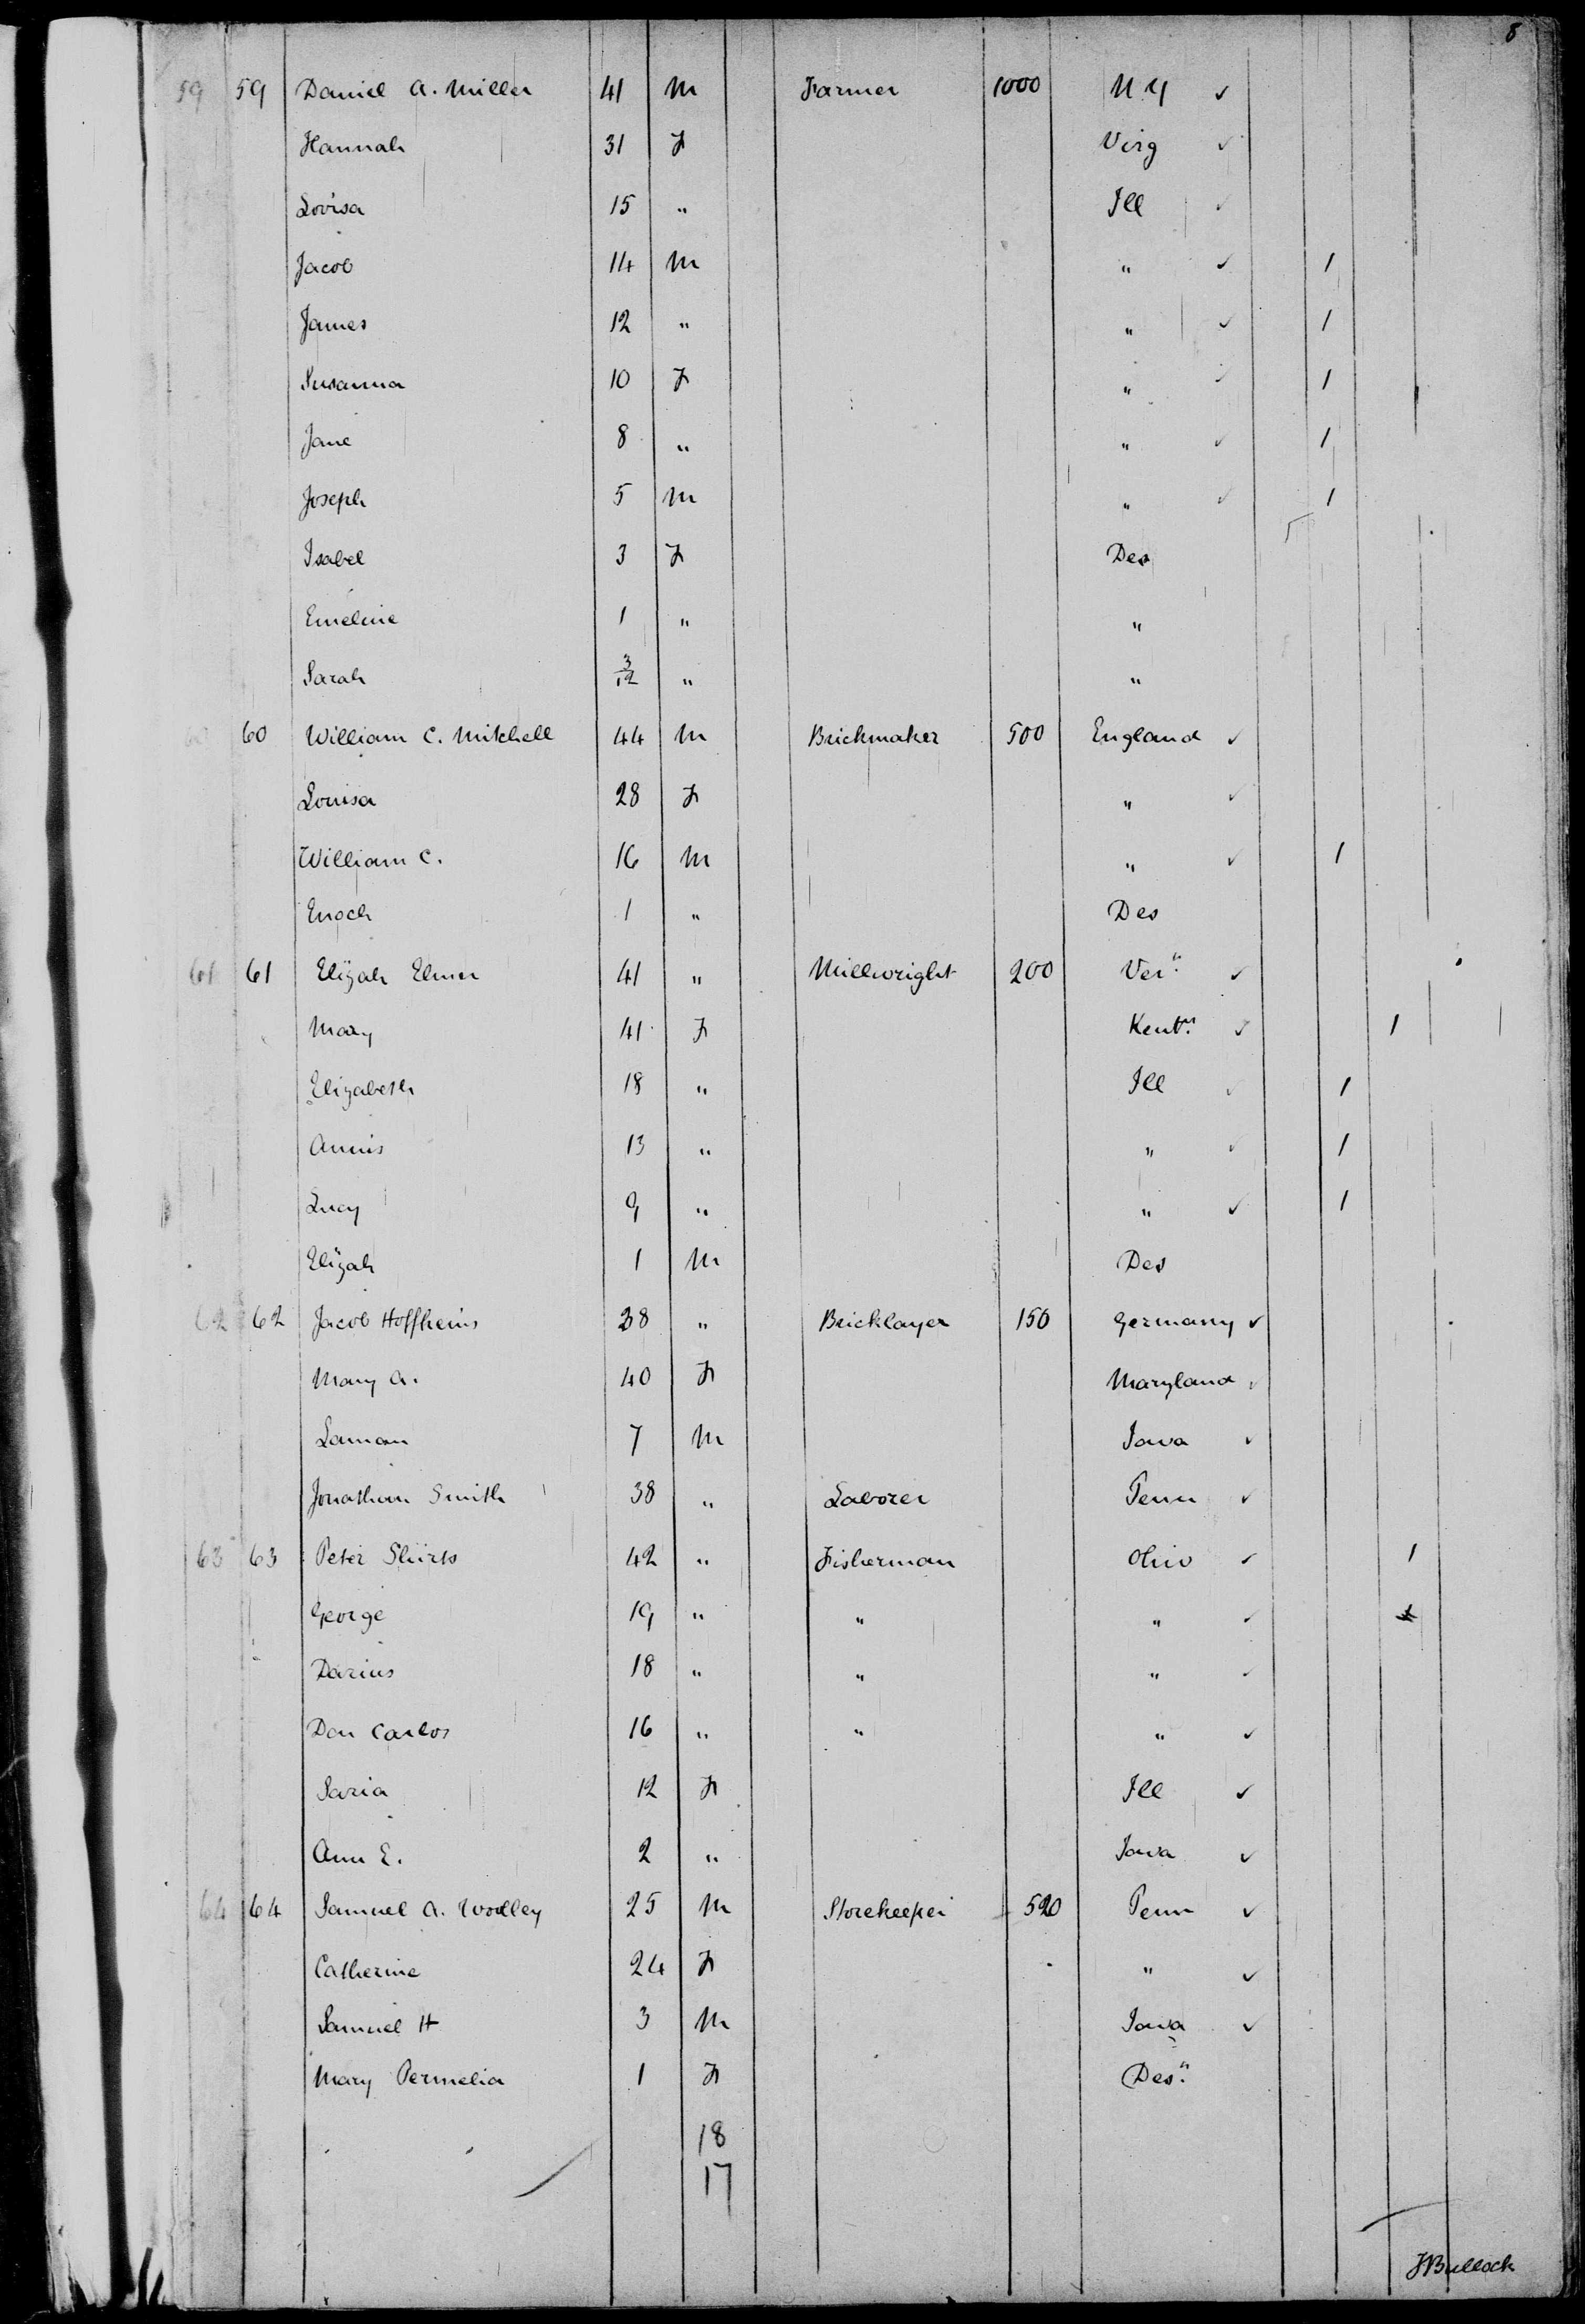 8
59 59 Daniel A. Miller 41 M Farmer 1000 N Y ✓
Hannah 31 F Virg ✓
Lovisa 15 " Ill ✓
Jacob 14 M " ✓ 1
James 12 " " ✓ 1
Susanna 10 F " ✓ 1
Jane 8 " " ✓ 1
Joseph 5 M " ✓ 1
5
Isabel 3 F Des
Emeline 1 " "
Sarah 3/12 " "
60 60 William C. Mitchell 44 M Brickmaker 500 England ✓
Louisa 28 F " ✓
William C. 16 M " ✓ 1
Enoch 1 " Des
61 61 Elijah Elmer 41 " Millwright 200 Ver" ✓
Mary 41 F Kent" ✓ 1
Elizabeth 18 " Ill ✓ 1
Annis 13 " " ✓ 1
Lucy 9 " " ✓ 1
Elijah 1 M Des
62 62 Jacob Hoffheins 38 " Bricklayer 150 Germany ✓
Mary A. 40 F Maryland ✓
Laman 7 M Iowa ✓
Jonathan Smith 38 " Laborer Penn ✓
63 63 Peter Shirts 42 " Fisherman Ohio ✓ 1
George 19 " " " ✓
Darius 18 " " " ✓
Don Carlos 16 " " " ✓
Saria 12 F Ill ✓
Ann E. 2 " Iowa ✓
64 64 Samuel A. Woolley 25 M Storekeeper 520 Penn ✓
Catherine 24 F " ✓
Samuel H 3 M Iowa ✓
Mary Permelia 1 F Des"
18
17
JBullock